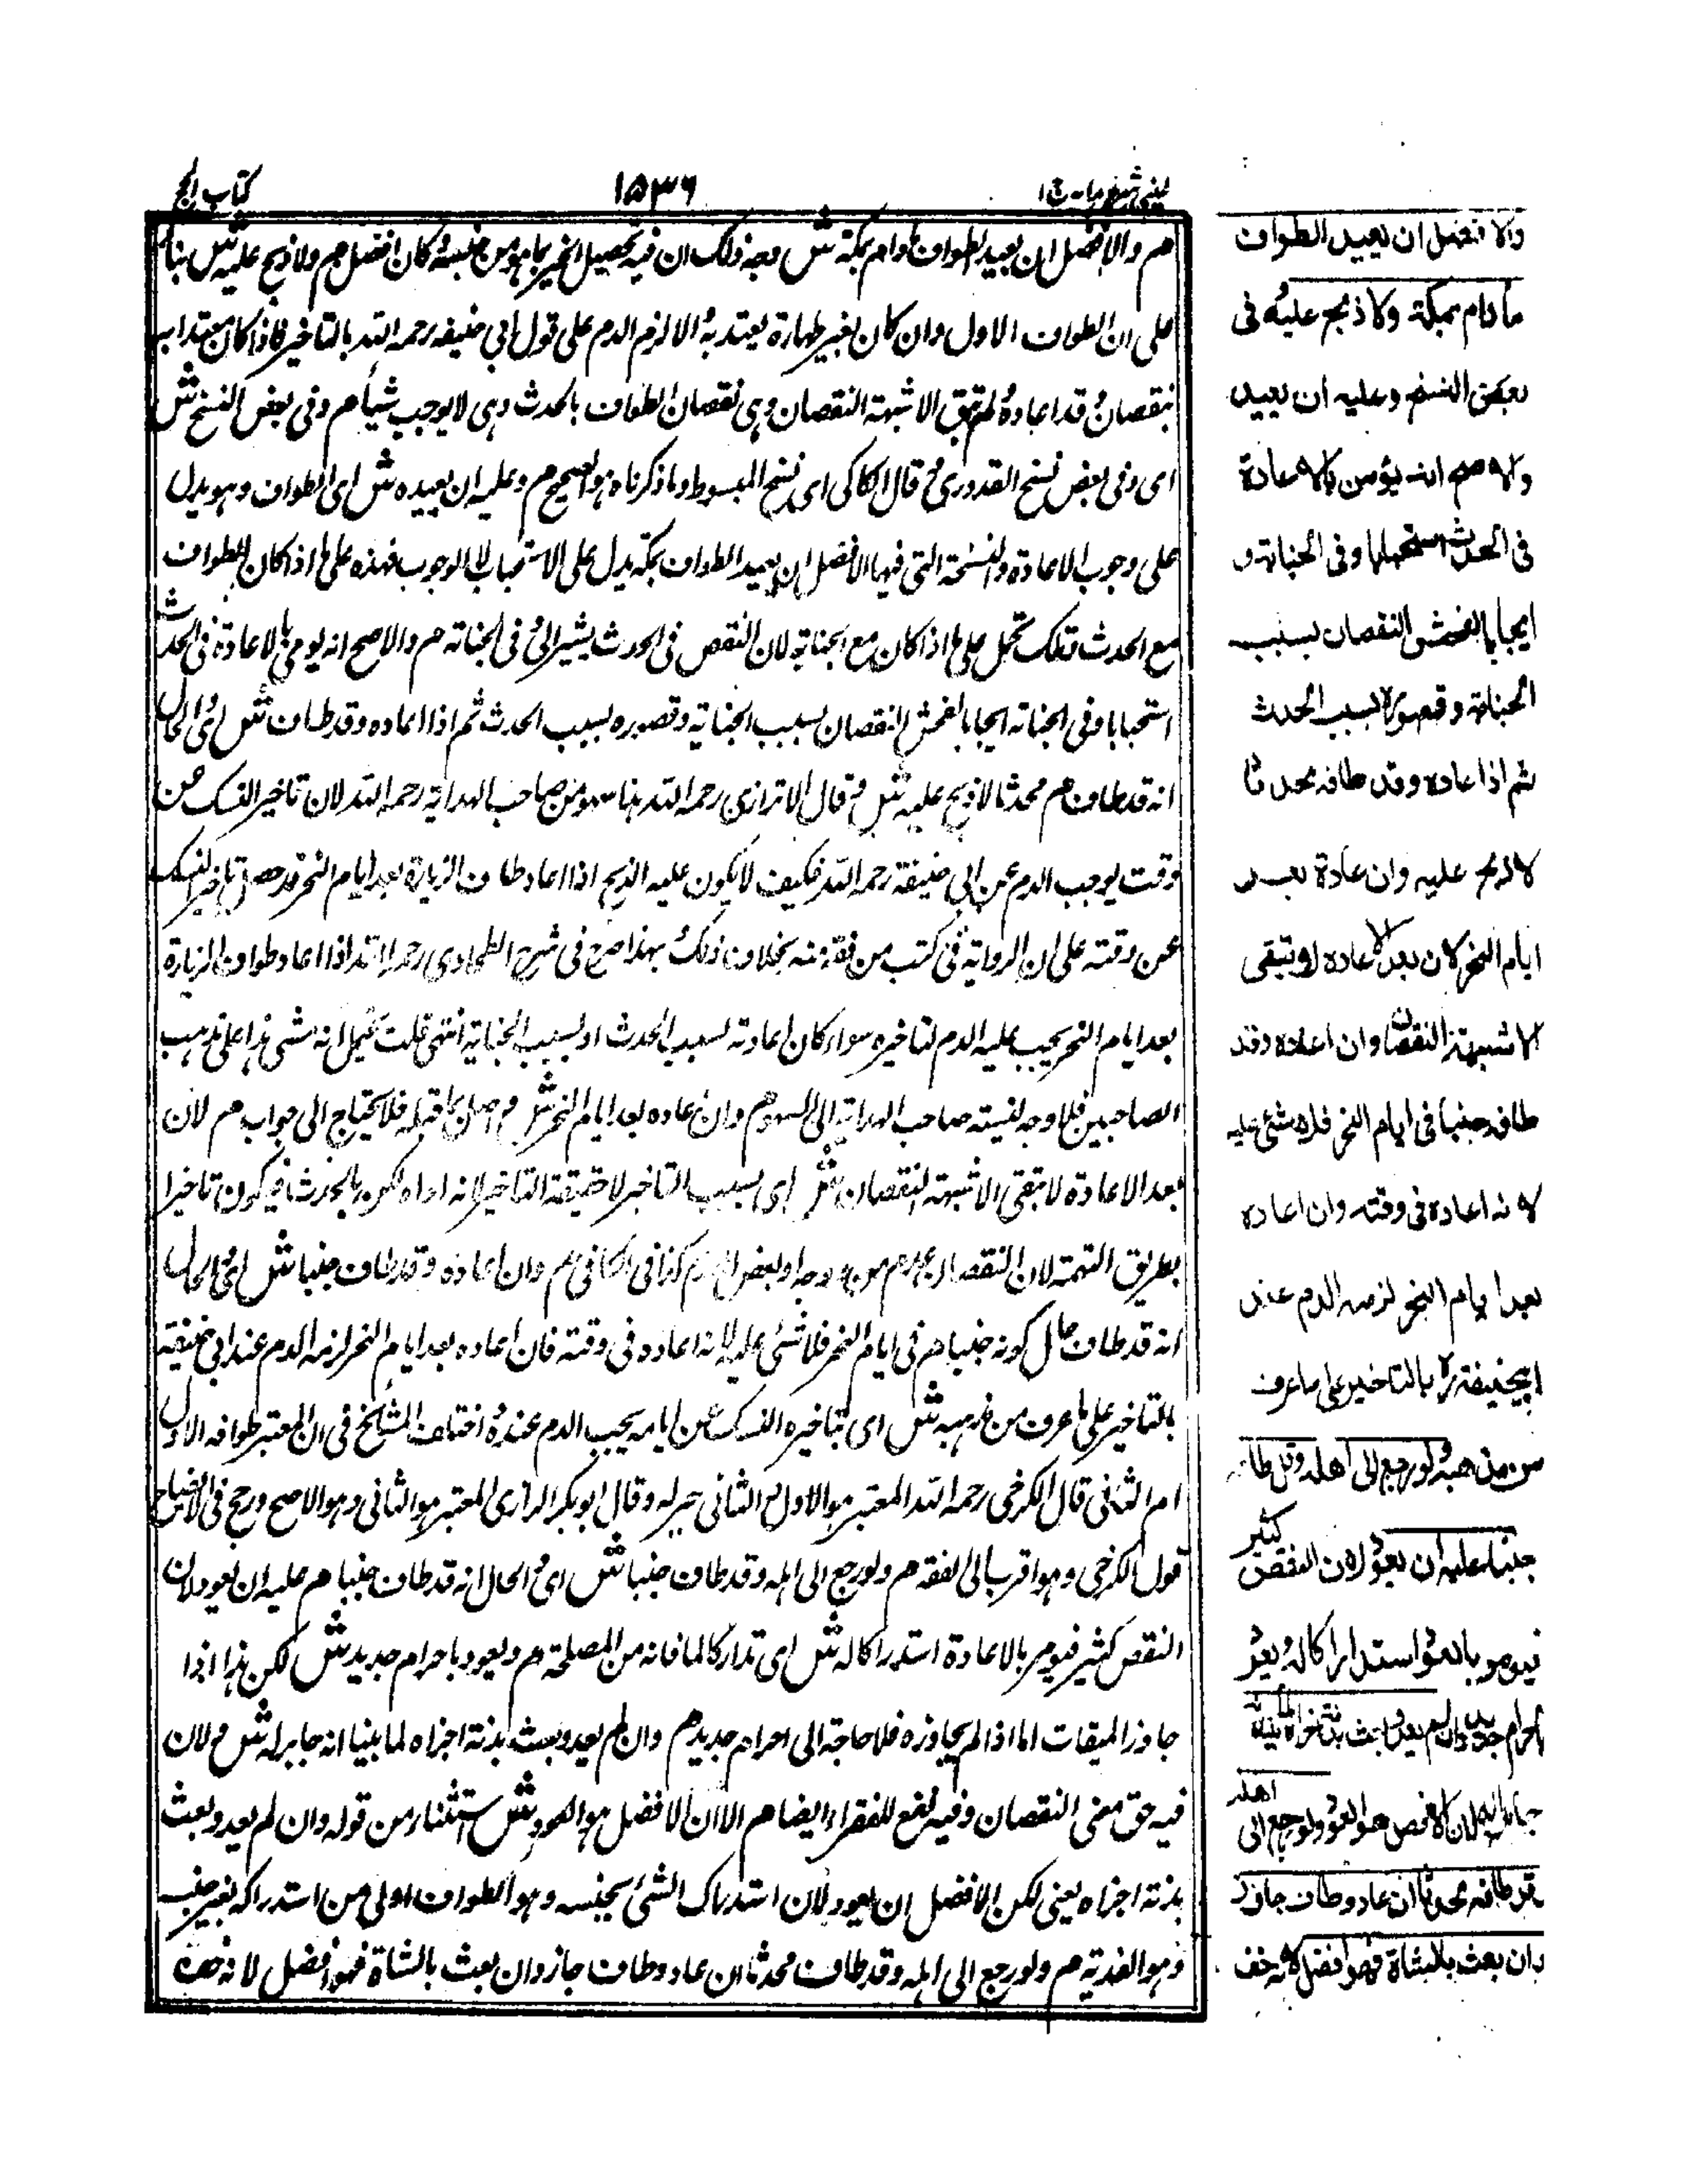 كتاب الحج
١٥٣٦
عيني شرح هداية ج ١
م والافضل ان يعيد الطواف مادام بمكة ش وجه ذلك ان فيه تحصيل الجبر بما هو من جنسه فكان افضل م ولا ذبح عليه ش بناء
على ان الطواف الاول وان كان بغير طهارة يعتد به الا لزم الدم على قول ابي حنيفه رحمه الله بالتاخير فاذا كان معتدا به
بنقصان قد اعاده لم تبق الا شبهة النقصان وهى نقصان الطواف بالحدث وهى لا يوجب شيأ م وفى بعض النسخ ش
اى وفى بعض نسخ القدورى قال الكاكى اى نسخ المبسوط وما ذكرناه هو الصحيح م وعليه ان يعيده ش اى الطواف وهو يدل
على وجوب الاعادة والنسخة التى فيها الافضل ان يعيد الطواف بمكة يدل على الاستحباب لا الوجوب فهذه على ما اذا كان الطواف
مع الحدث وتلك تحمل على ما اذا كان مع الجنابة لان النقص فى الحدث يسير الى فى الجنابة م والاصح انه يومر بالاعادة فى الحدث
استحبابا وفى الجنابة ايجابا لفحش النقصان بسبب الجنابة وقصوره بسبب الحدث ثم اذا اعاده وقد طاف ش اى والحال
انه قد طاف م محدثا لا ذبح عليه ش قال الاترازى رحمه الله هذا سهو من صاحب الهداية رحمه الله لان تاخير النسك عن
وقت يوجب الدم عن ابى حنيفة رحمه الله فكيف لا يكون عليه الذبح اذا اعاد طاف الزيارة بعد ايام النحر قد حصل تاخير النسك
عن وقته على ان الرواية فى كتب من فقه منه بخلاف ذلك بهذا صرح فى شرح الطحاوى رحمه الله اذا اعاد طواف الزيارة
بعد ايام النحر يجب عليه الدم لتاخيره سواء كان اعادته لسبب الحدث او بسبب الجنابة انتهى قلت يحتمل انه مشى هذا على مذهب
الصاحبين فلا وجه لنسبته صاحب الهداية الى السهو م وان اعاده بعد ايام النحر ش م اصل بما قبله فلا يحتاج الى جواب م لان
بعد الاعادة لا تبقى الا شبهة النقصان ش اى بسبب التاخير لا حقيقة التاخير لانه اداه لكن بالحدث فيكون تاخيرا
بطريق التهمة لان النقصان كذا فى الكافى م وان اعاده وقد طاف جنبا ش اى والحال
انه قد طاف حال كونه جنبا م فى ايام النحر فلا شئ عليه لانه اعاده فى وقته فان اعاده بعد ايام النحر لزمه الدم عند ابى حنيفة
بالتاخير على ما عرف من مذهبه ش اى بتاخيره النسك عن ايامه يجب الدم عنده اختلف المشائخ فى ان المعتبر طوافه الاول
ام الثانى قال الكرخى رحمه الله المعتبر هو الاول والثانى جبر له وقال ابو بكر الرازى المعتبر هو الثانى وهو الاصح ورجح فى الايضاح
قول الكرخى وهو اقرب الى الفقه م ولو رجع الى اهله وقد طاف جنبا ش اى والحال انه قد طاف جنبا م عليه ان يعود لان
النقص كثير فيومر بالاعادة استدراكا له ش اى تداركا لما فاته من المصلحة م ويعود باحرام جديد ش لكن هذا اذا
جاوز الميقات اما اذا لم يجاوزه فلا حاجة الى احرام جديد م وان لم يعد وبعث بدنة اجزاه لما بينا انه جابر له ش لان
فيه حق معنى النقصان وفيه نفع للفقراء ايضا م الا ان الافضل هو العود ش استثناء من قوله وان لم يعد وبعث
بدنة اجزاه يعنى لكن الافضل ان يعود لان استدراك الشئ بجنسه وهو الطواف اولى من استدراكه بغير جنسه
وهو الفدية م ولو رجع الى اهله وقد طاف محدثا ان عاد وطاف جاز وان بعث بالشاة فهو افضل لانه خف
والافضل ان يعيد الطواف
مادام بمكة ولا ذبح عليه فى
بعض النسخ وعليه ان يعيد
والاصح انه يؤمر بالاعادة
فى الحدث استحبابا وفى الجنابة
ايجابا لفحش النقصان بسبب
الجنابة وقصوره بسبب الحدث
ثم اذا اعاده وقد طافه محدثا
لا ذبح عليه وان عادة بعد
ايام النحر لان بعد الاعاده لا تبقى
الا شبهة النقصان وان اعاده وقد
طافه جنبا فى ايام النحر فلا شئ عليه
لانه اعاده فى وقته وان اعاده
بعد ايام النحر لزمه الدم عند
ابيحنيفة رح بالتاخير على ما عرف
من مذهبه ولو رجع الى اهله وقد طاف
جنبا عليه ان يعود لان النقص كثير
فيومر بالعود استدراكا له ويعود
باحرام جديد وان لم يعد وبعث بدنة اجزاه لما بينا انه
جابر له الا ان الافضل هو العود ولو رجع الى اهله
وقد طافه محدثا ان عاد وطاف جاز
وان بعث بالشاة فهو افضل لانه خف